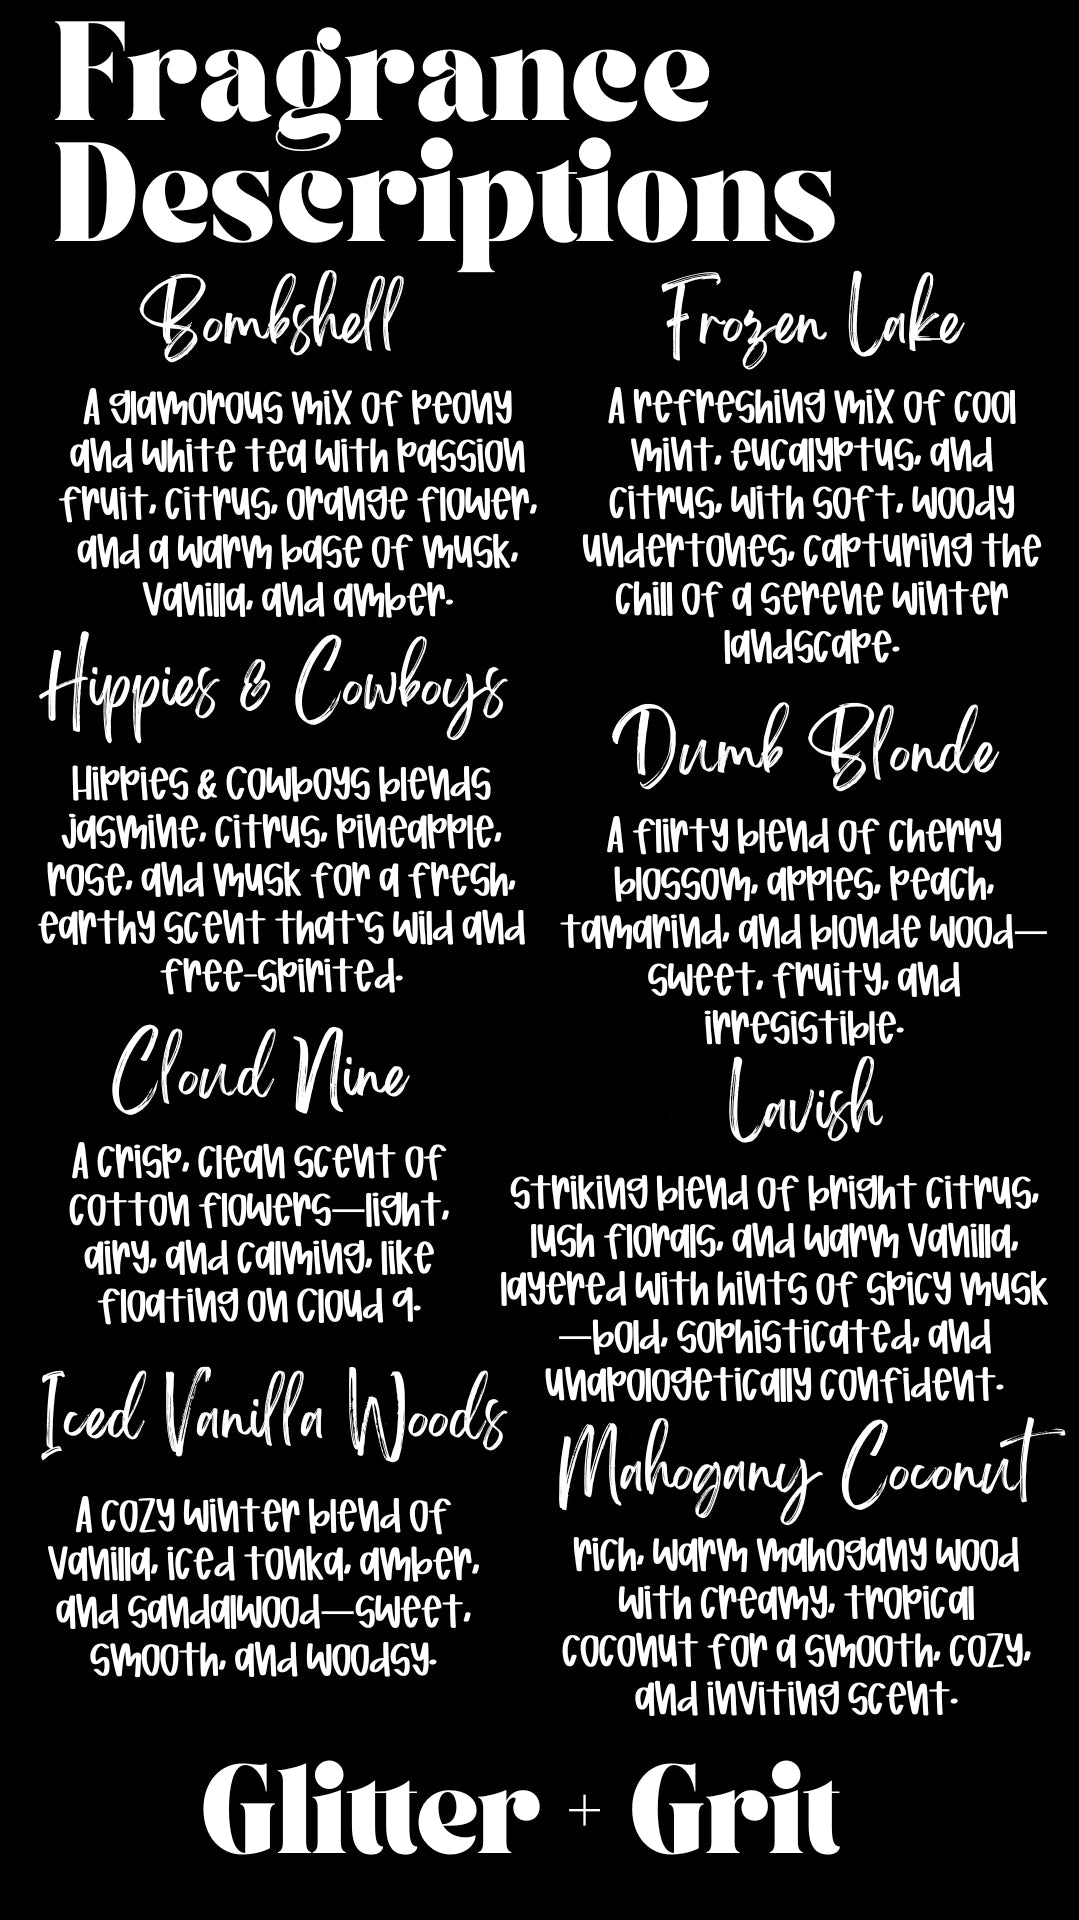 Fragrance
Descriptions
Bombshell
A glamorous mix of peony
and white tea with passion
fruit, citrus, orange flower,
and a warm base of musk,
vanilla, and amber.
Hippies & Cowboys
Hippies & Cowboys blends
jasmine, citrus, pineapple,
rose, and musk for a fresh,
earthy scent that's wild and
free-spirited.
Cloud Nine
A crisp, clean scent of
cotton flowers—light,
airy, and calming, like
floating on cloud 9.
Iced Vanilla Woods
A cozy winter blend of
vanilla, iced tonka, amber,
and sandalwood—sweet,
smooth, and woodsy.
Frozen Lake
A refreshing mix of cool
mint, eucalyptus, and
citrus, with soft, woody
undertones, capturing the
chill of a serene winter
landscape.
Dumb Blonde
A flirty blend of cherry
blossom, apples, peach,
tamarind, and blonde wood—
sweet, fruity, and
irresistible.
Lavish
striking blend of bright citrus,
lush florals, and warm vanilla,
layered with hints of spicy musk
—bold, sophisticated, and
unapologetically confident.
Mahogany Coconut
rich, warm mahogany wood
with creamy, tropical
coconut for a smooth, cozy,
and inviting scent.
Glitter + Grit